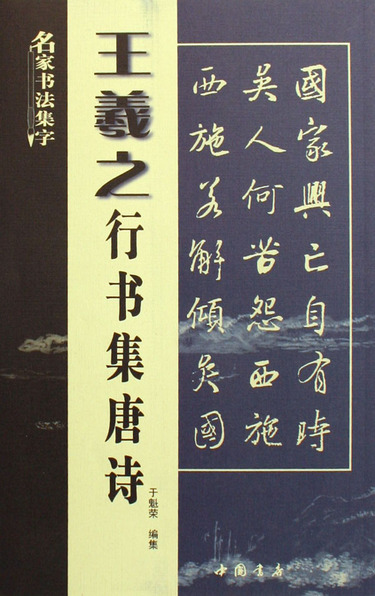 名家书法集字
王羲之行书集唐诗
于魁荣 编集
國家興亡自有時
吴人何苦怨西施
西施若解傾吴國
中国书店